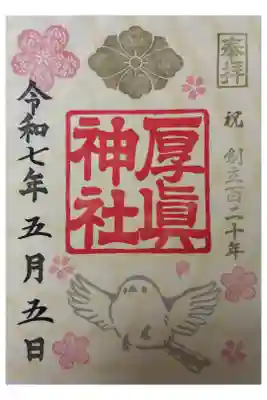 奉拝
祝 創立百二十年
厚眞
神社
令和七年 五月 五日